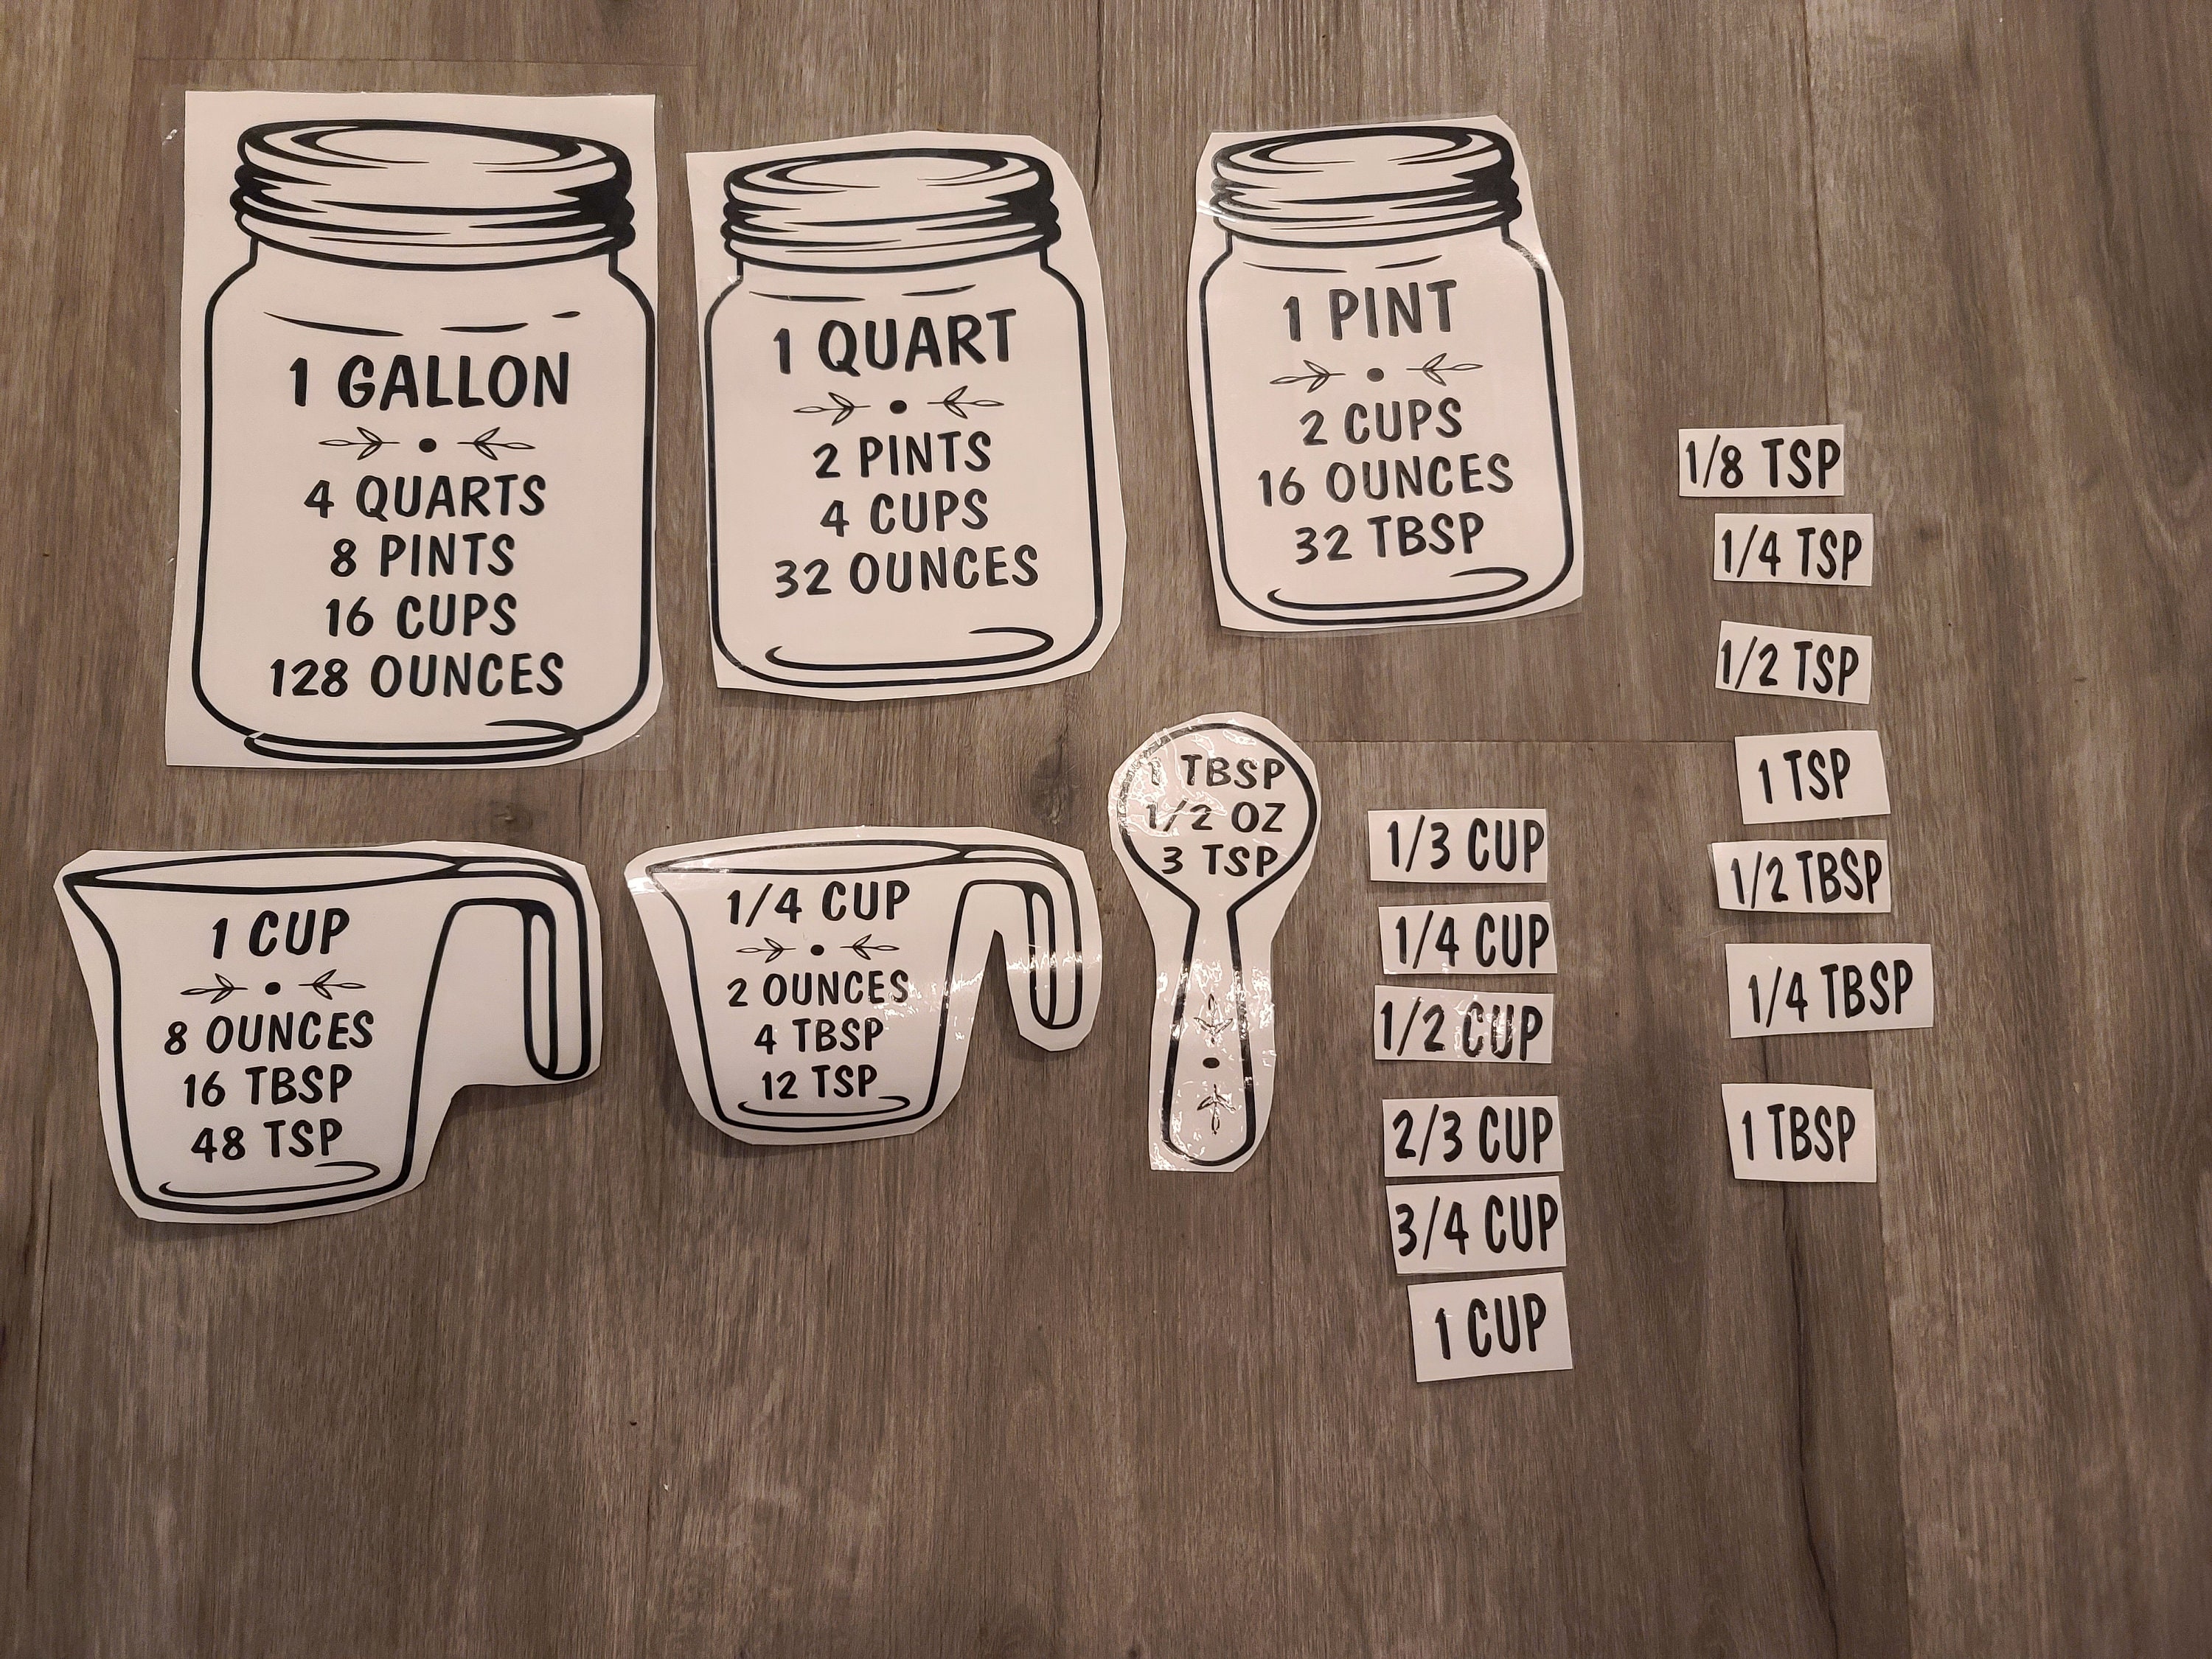 1 GALLON
4 QUARTS
8 PINTS
16 CUPS
128 OUNCES
1 QUART
2 PINTS
4 CUPS
32 OUNCES
1 PINT
2 CUPS
16 OUNCES
32 TBSP
1 CUP
8 OUNCES
16 TBSP
48 TSP
1/4 CUP
2 OUNCES
4 TBSP
12 TSP
1 TBSP
1/2 OZ
3 TSP
1/3 CUP
1/4 CUP
1/2 CUP
2/3 CUP
3/4 CUP
1 CUP
1/8 TSP
1/4 TSP
1/2 TSP
1 TSP
1/2 TBSP
1/4 TBSP
1 TBSP